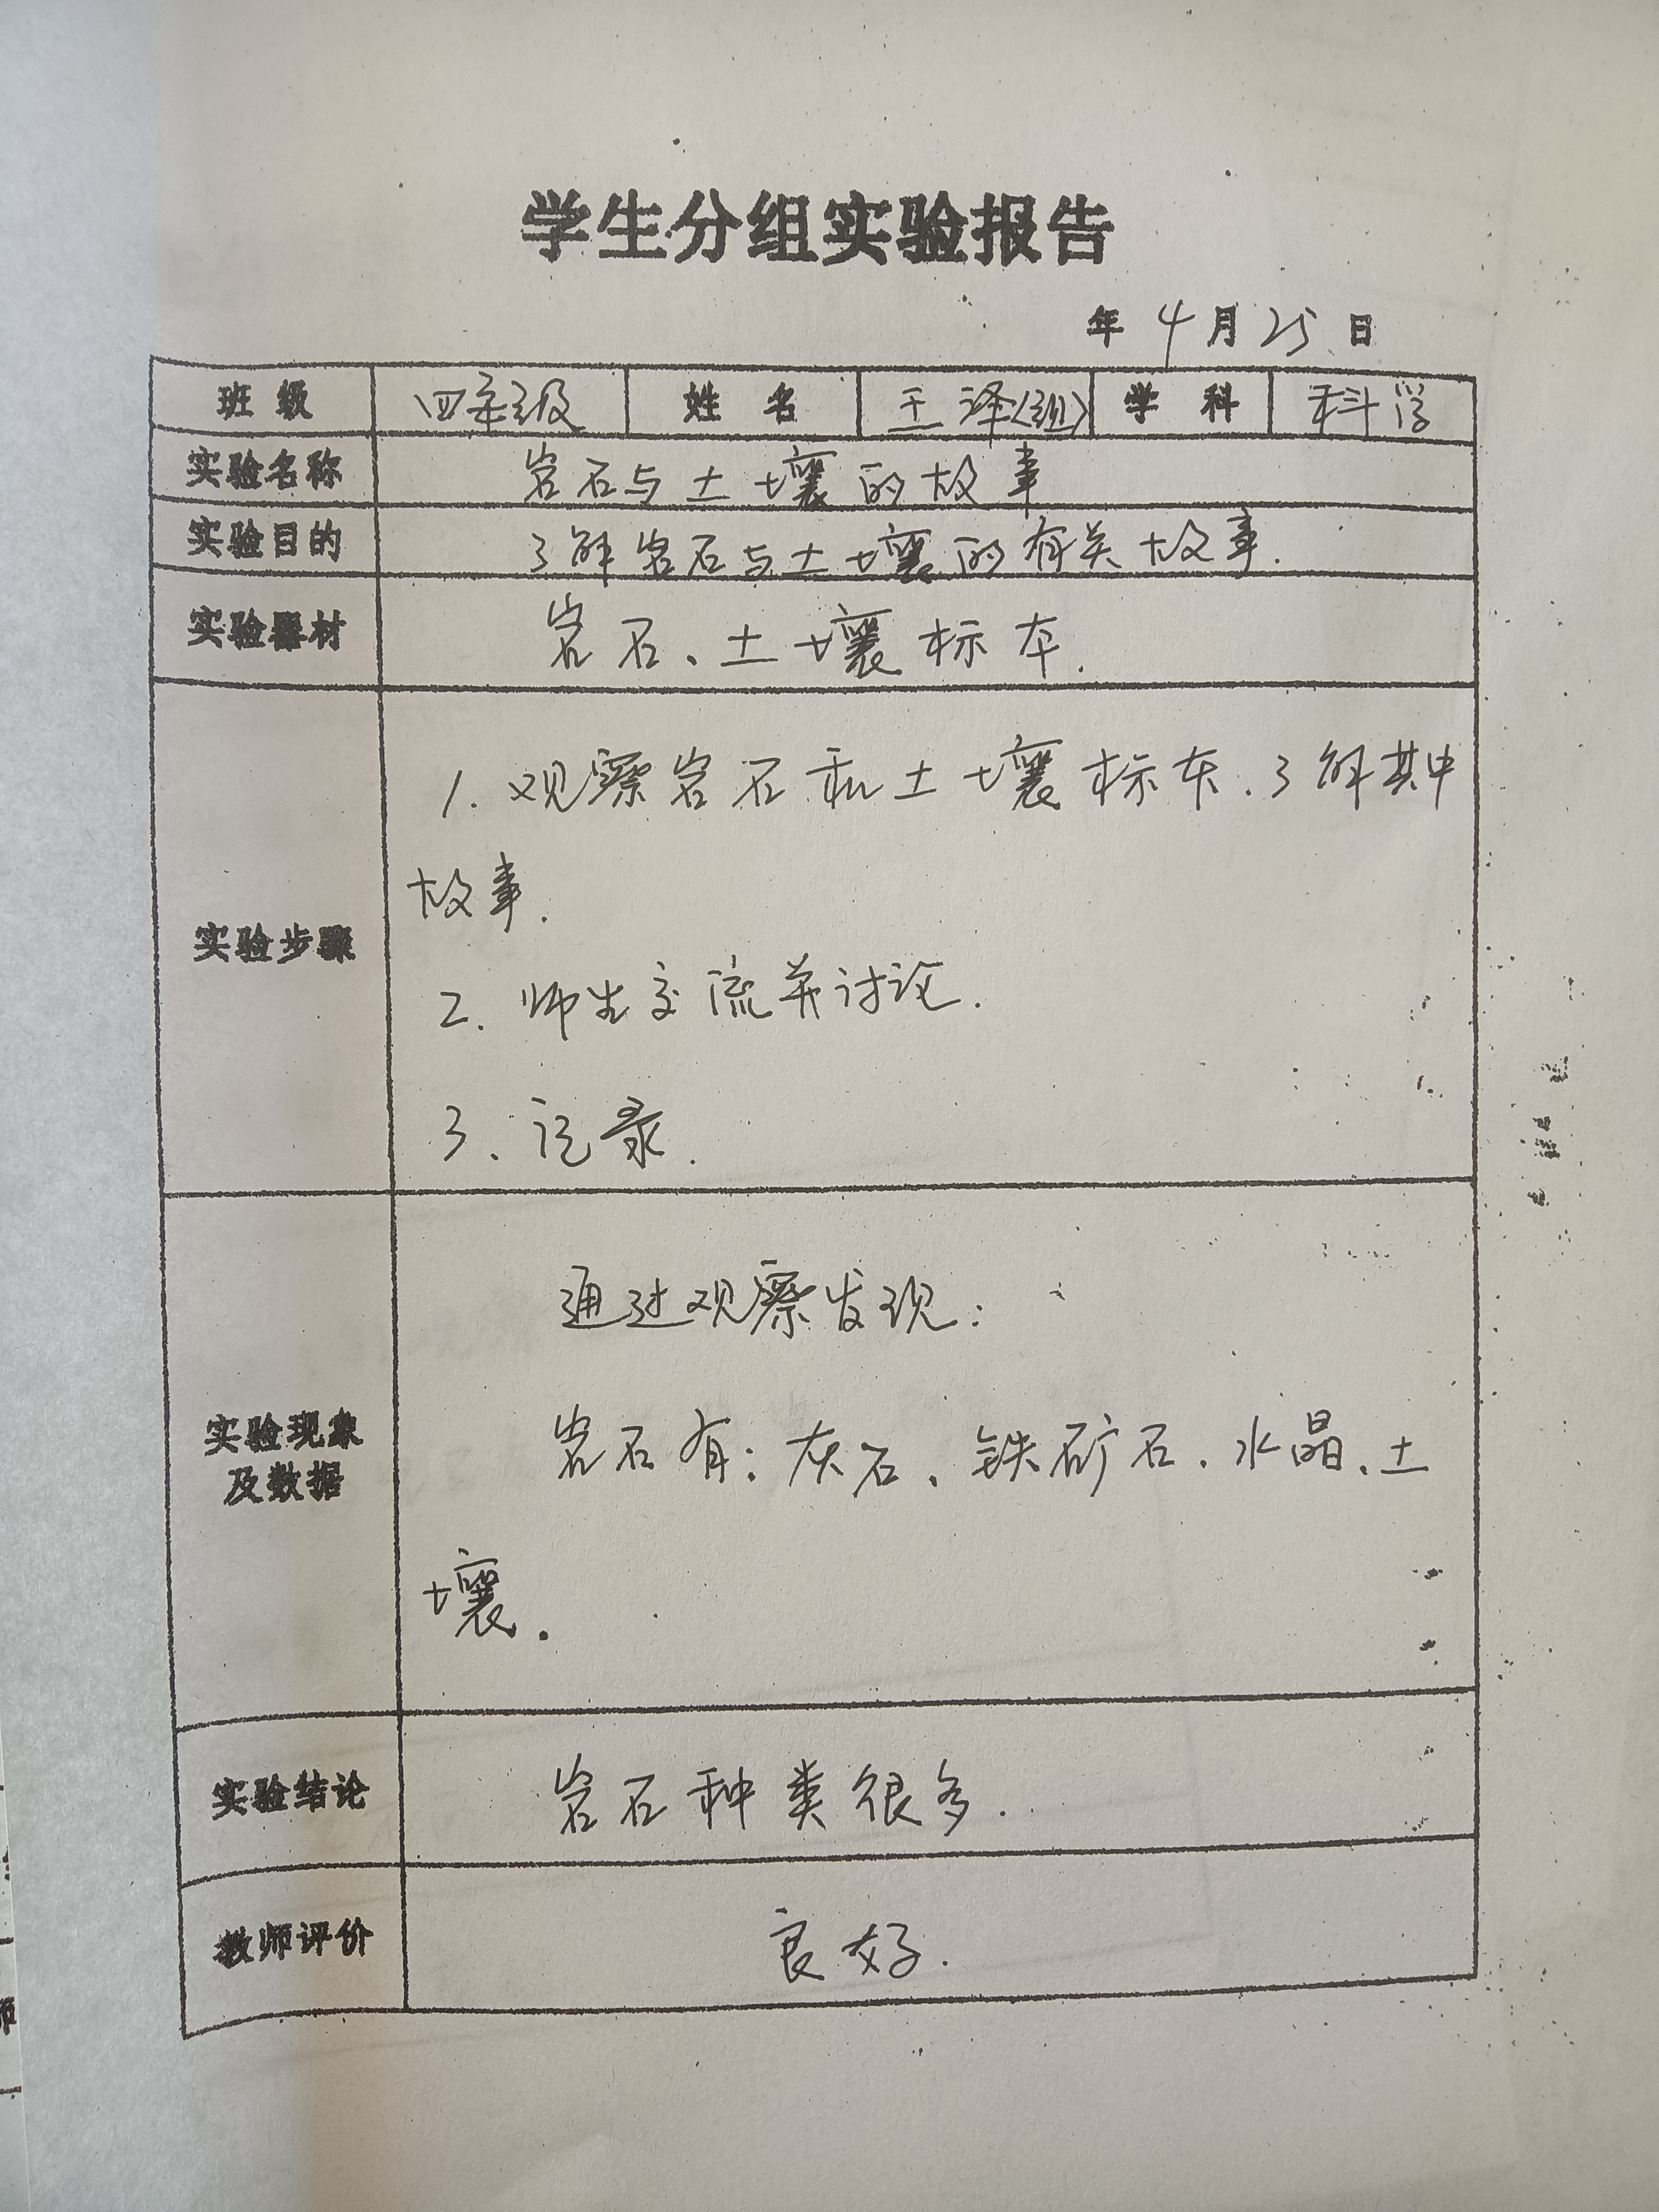 学生分组实验报告
年 4 月 25 日
班级 四年级 姓名 王泽(组) 学科 科学
实验名称 岩石与土壤的故事
实验目的 了解岩石与土壤的有关故事.
实验器材 岩石、土壤标本.
实验步骤
1. 观察岩石和土壤标本.了解其中
故事.
2. 师生交流并讨论.
3、记录.
实验现象
及数据
通过观察发现:
岩石有:灰石、铁矿石、水晶、土
壤.
实验结论 岩石种类很多.
教师评价 良好.
师